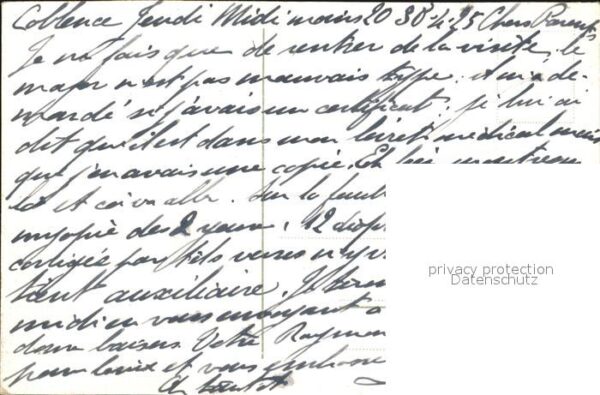 Coblence Jeudi Midi moins 20 30-4-25 Chers Parents
Je ne fais que de rentrer de la visite, le
major n'est pas mauvais type. il m'a de-
mandé si j'avais un certificat; je lui ai
dit qu'il est dans mon livret médical mais
que j'en avais une copie. Et lui montrant
la
et ça va aller. Sur la feuille
myopie des 2 yeux, 12 diop
corrigée par
verres n'y
tant auxiliaire. Je
midi en vous envoyant
doux baisers. Votre Raymond
pour
et vous embrasse
A bientôt
privacy protection
Datenschutz